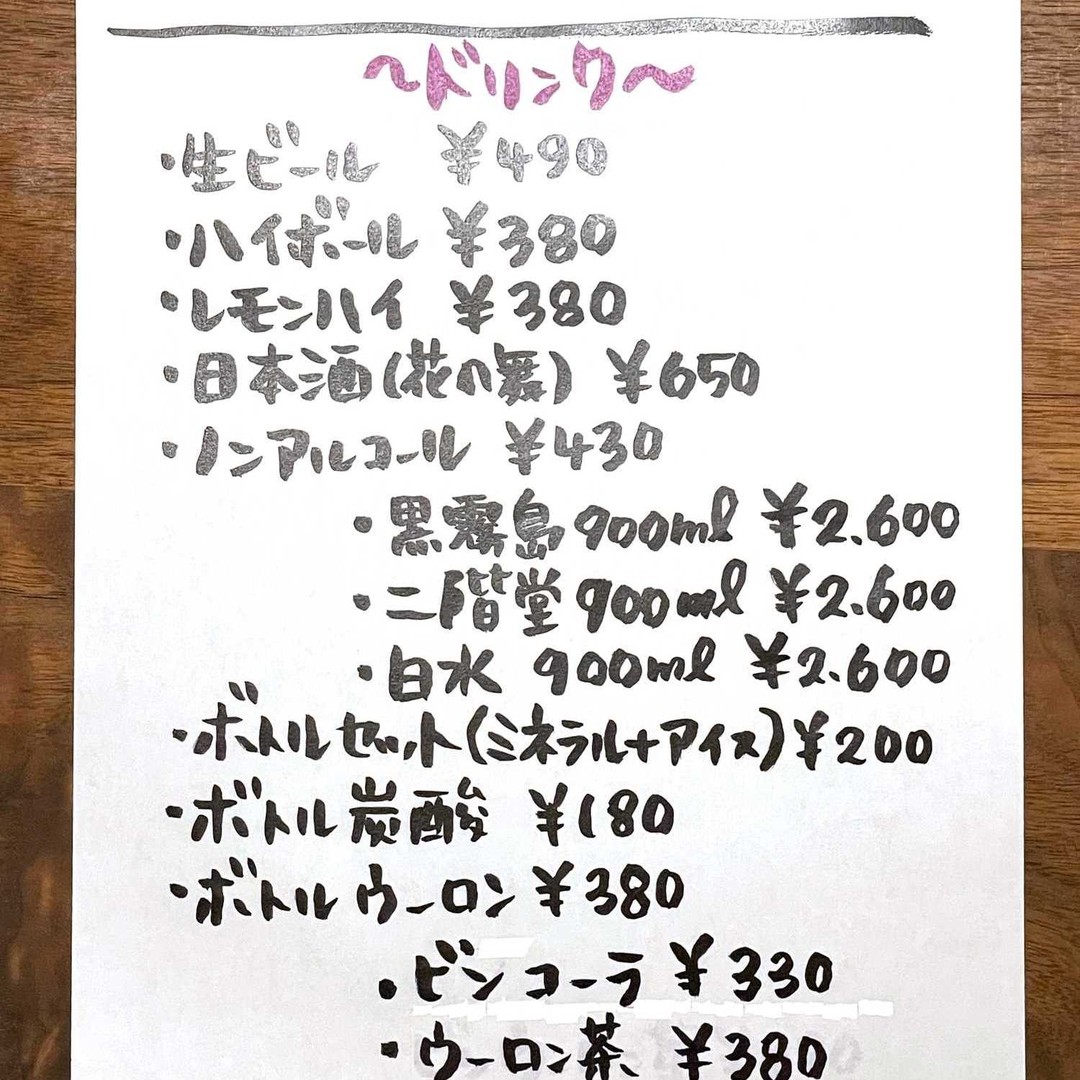 ～ドリンク～
・生ビール ¥490
・ハイボール ¥380
・レモンハイ ¥380
・日本酒(花の舞) ¥650
・ノンアルコール ¥430
・黒霧島 900ml ¥2.600
・二階堂 900ml ¥2.600
・白水 900ml ¥2.600
・ボトルセット(ミネラル+アイス)¥200
・ボトル炭酸 ¥180
・ボトルウーロン ¥380
・ビンコーラ ¥330
・ウーロン茶 ¥380